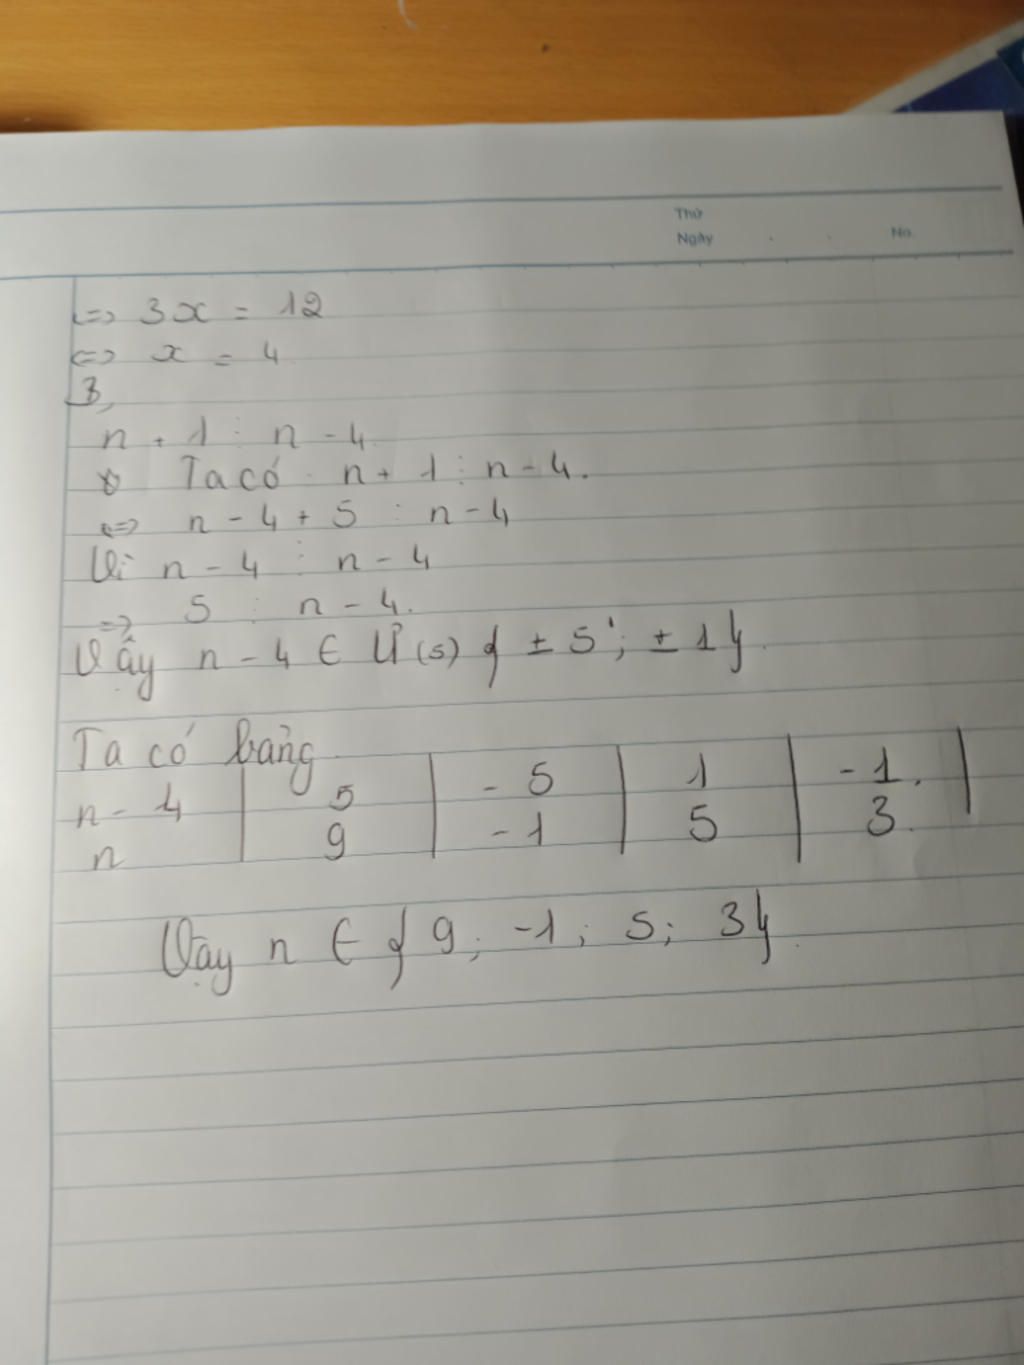 Thứ
Ngày . . No.
<=> 3x = 12
<=> x = 4
3,
n + 1 ⋮ n - 4
* Ta có : n + 1 ⋮ n - 4.
<=> n - 4 + 5 ⋮ n - 4
Vì n - 4 ⋮ n - 4
=> 5 ⋮ n - 4.
Vậy n - 4 ∈ Ư(5) { ± 5 ; ± 1 }.
Ta có bảng
n - 4 | 5 | - 5 | 1 | - 1. |
n | 9 | - 1 | 5 | 3.
Vậy n ∈ { 9 ; -1 ; 5 ; 3 }.